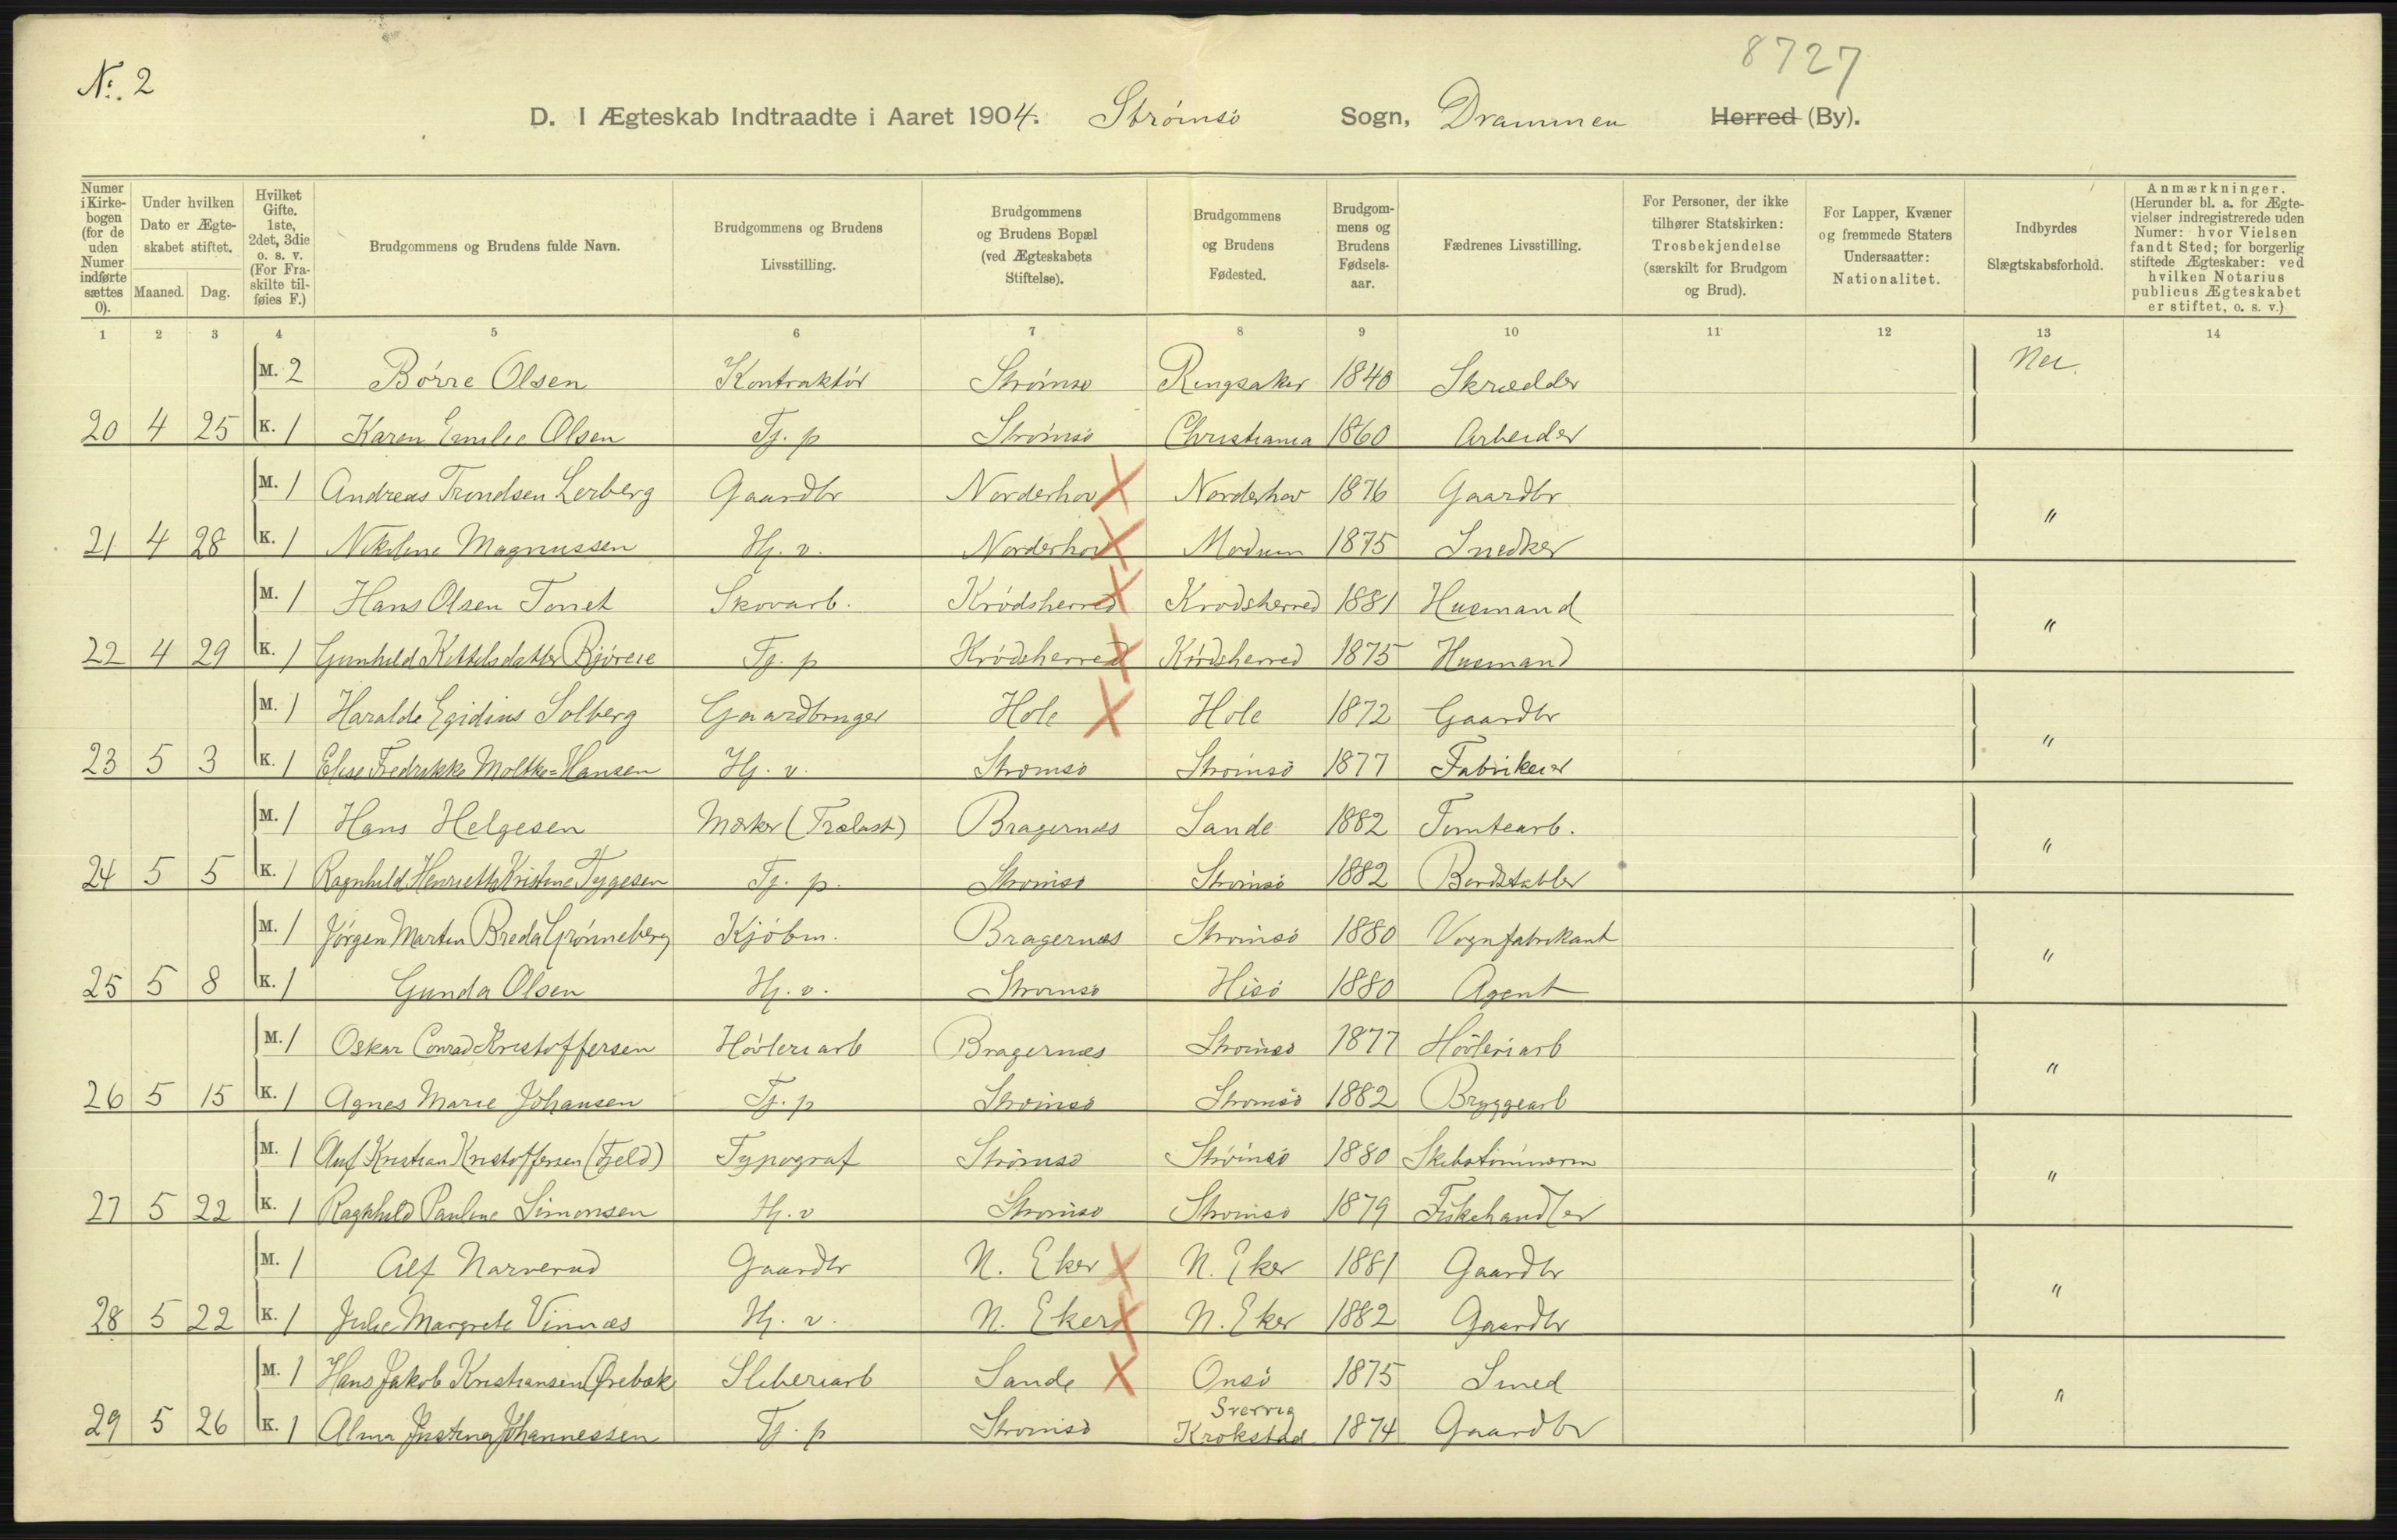 8727
No. 2
D. I Ægteskab Indtraadte i Aaret 1904. Strömsö Sogn, Drammen Herred (By).
Numer i Kirkebogen (for de uden Numer indførte sættes 0). | Under hvilken Dato er Ægteskabet stiftet. Maaned. Dag. | Hvilket Gifte. 1ste, 2det, 3die o. s. v. (For Fraskilte tilføies F.) | Brudgommens og Brudens fulde Navn. | Brudgommens og Brudens Livsstilling. | Brudgommens og Brudens Bopæl (ved Ægteskabets Stiftelse). | Brudgommens og Brudens Fødested. | Brudgommens og Brudens Fødselsaar. | Fædrenes Livsstilling. | For Personer, der ikke tilhører Statskirken: Trosbekjendelse (særskilt for Brudgom og Brud). | For Lapper, Kvæner og fremmede Staters Undersaatter: Nationalitet. | Indbyrdes Slægtskabsforhold. | Anmærkninger. (Herunder bl. a. for Ægtevielser indregistrerede uden Numer: hvor Vielsen fandt Sted; for borgerlig stiftede Ægteskaber: ved hvilken Notarius publicus Ægteskabet er stiftet, o. s. v.)
1 2 3 4 5 6 7 8 9 10 11 12 13 14
M. 2 Börre Olsen Kontraktör Strömsö Ringsaker 1840 Skrædder Nei.
20 4 25 K. 1 Karen Emilie Olsen Tj. p Strömsö Christiania 1860 Arbeider
M. 1 Andreas Trondsen Lerberg Gaardbr Norderhov Norderhov 1876 Gaardbr
21 4 28 K. 1 Nikoline Magnussen Hj. v. Norderhov Modum 1875 Snedker "
M. 1 Hans Olsen Skovarb. Krödsherred Krödsherred 1881 Husmand
22 4 29 K. 1 Gunhild Kittelsdatter Tj. p Krödsherred Krödsherred 1875 Husmand "
M. 1 Haralde Egidius Solberg Gaardbruger Hole Hole 1872 Gaardbr
23 5 3 K. 1 Elise Fredrikke Moltke-Hansen Hj. v. Strömsö Strömsö 1877 Fabrikeier "
M. 1 Hans Helgesen Mærker (Trælast) Bragernæs Sande 1882 Tomtearb.
24 5 5 K. 1 Ragnhild Henriette Kristine Tygesen Tj. p. Strömsö Strömsö 1882 Bordstabler "
M. 1 Jörgen Martin Breda Grönneberg Kjöbm. Bragernæs Strömsö 1880 Vognfabrikant
25 5 8 K. 1 Gunda Olsen Hj. v. Strömsö Hisö 1880 Agent "
M. 1 Oskar Conrad Kristoffersen Hövleriarb Bragernæs Strömsö 1877 Hövleriarb
26 5 15 K. 1 Agnes Marie Johansen Tj. p Strömsö Strömsö 1882 Bryggearb "
M. 1 Oluf Kristian Kristoffersen (Fjeld) Typograf Strömsö Strömsö 1880 Skibstömmerm
27 5 22 K. 1 Ragnhild Pauline Simonsen Hj. v Strömsö Strömsö 1879 Fiskehandler "
M. 1 Alf Narverud Gaardbr N. Eker N. Eker 1881 Gaardbr
28 5 22 K. 1 Julie Margrete Vinnæs Hj. v. N. Eker N. Eker 1882 Gaardbr "
M. 1 Hans Jakob Kristiansen Sliberiarb Sande Onsö 1875 Smed
29 5 26 K. 1 Alma Justina Johannessen Tj. p Strömsö Krokstad Sverrig 1874 Gaardbr "